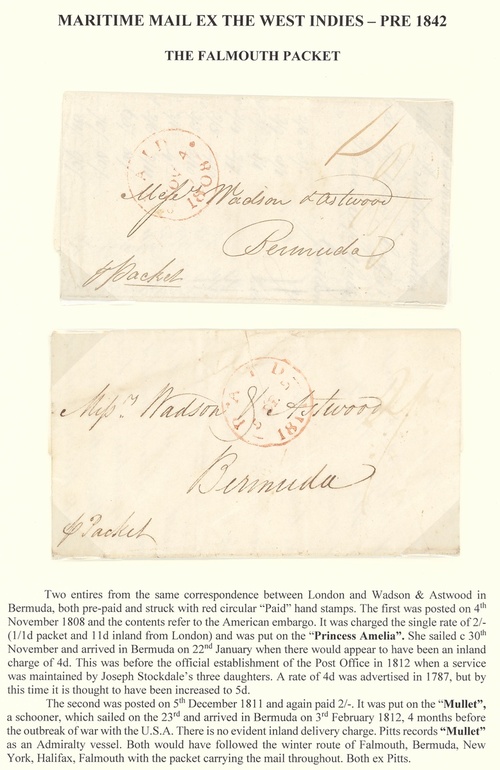 MARITIME MAIL EX THE WEST INDIES – PRE 1842
THE FALMOUTH PACKET
PAID
4
1808
Messrs Wadson & Astwood
Bermuda
p Packet
PAID
5
181
Messrs Wadson & Astwood
Bermuda
p Packet
Two entires from the same correspondence between London and Wadson & Astwood in
Bermuda, both pre-paid and struck with red circular “Paid” hand stamps. The first was posted on 4th
November 1808 and the contents refer to the American embargo. It was charged the single rate of 2/-
(1/1d packet and 11d inland from London) and was put on the “Princess Amelia”. She sailed c 30th
November and arrived in Bermuda on 22nd January when there would appear to have been an inland
charge of 4d. This was before the official establishment of the Post Office in 1812 when a service
was maintained by Joseph Stockdale’s three daughters. A rate of 4d was advertised in 1787, but by
this time it is thought to have been increased to 5d.
The second was posted on 5th December 1811 and again paid 2/-. It was put on the “Mullet”,
a schooner, which sailed on the 23rd and arrived in Bermuda on 3rd February 1812, 4 months before
the outbreak of war with the U.S.A. There is no evident inland delivery charge. Pitts records “Mullet”
as an Admiralty vessel. Both would have followed the winter route of Falmouth, Bermuda, New
York, Halifax, Falmouth with the packet carrying the mail throughout. Both ex Pitts.